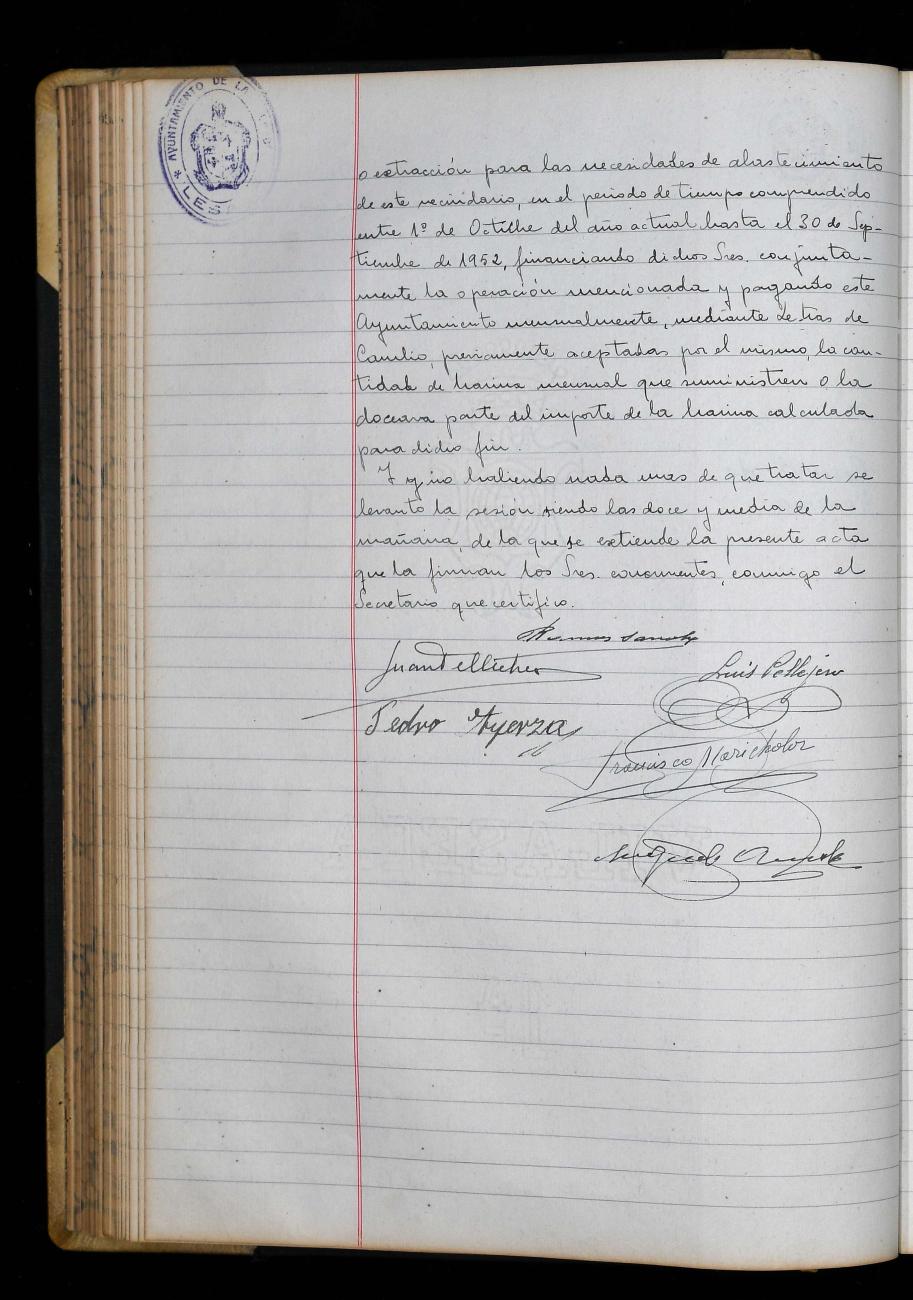 * AYUNTAMIENTO DE LA
* LES
o extracción para las necesidades de abastecimiento
de este vecindario, en el periodo de tiempo comprendido
entre 1º de Octubre del año actual hasta el 30 de Sep-
tiembre de 1952, financiando dichos Sres. conjunta-
mente la operación mencionada y pagando este
Ayuntamiento mensualmente, mediante Letras de
Cambio, previamente aceptadas por el mismo, la can-
tidad de harina mensual que suministren o la
doceava parte del importe de la harina calculada
para dicho fin.
Y y no habiendo nada mas de que tratar se
levanto la sesión siendo las doce y media de la
mañana, de la que se extiende la presente acta
que la firman los Sres. concurrentes, conmigo el
Secretario que certifico.
Juan
Luis Pellejero
Pedro Ayerza
Francisco Marichalar